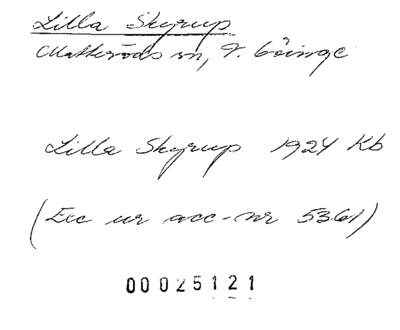 Lilla Skyrup
Matteröds sn, V. Göinge
Lilla Skyrup 1924 Kb
(Exc ur acc-nr 5361)
00025121